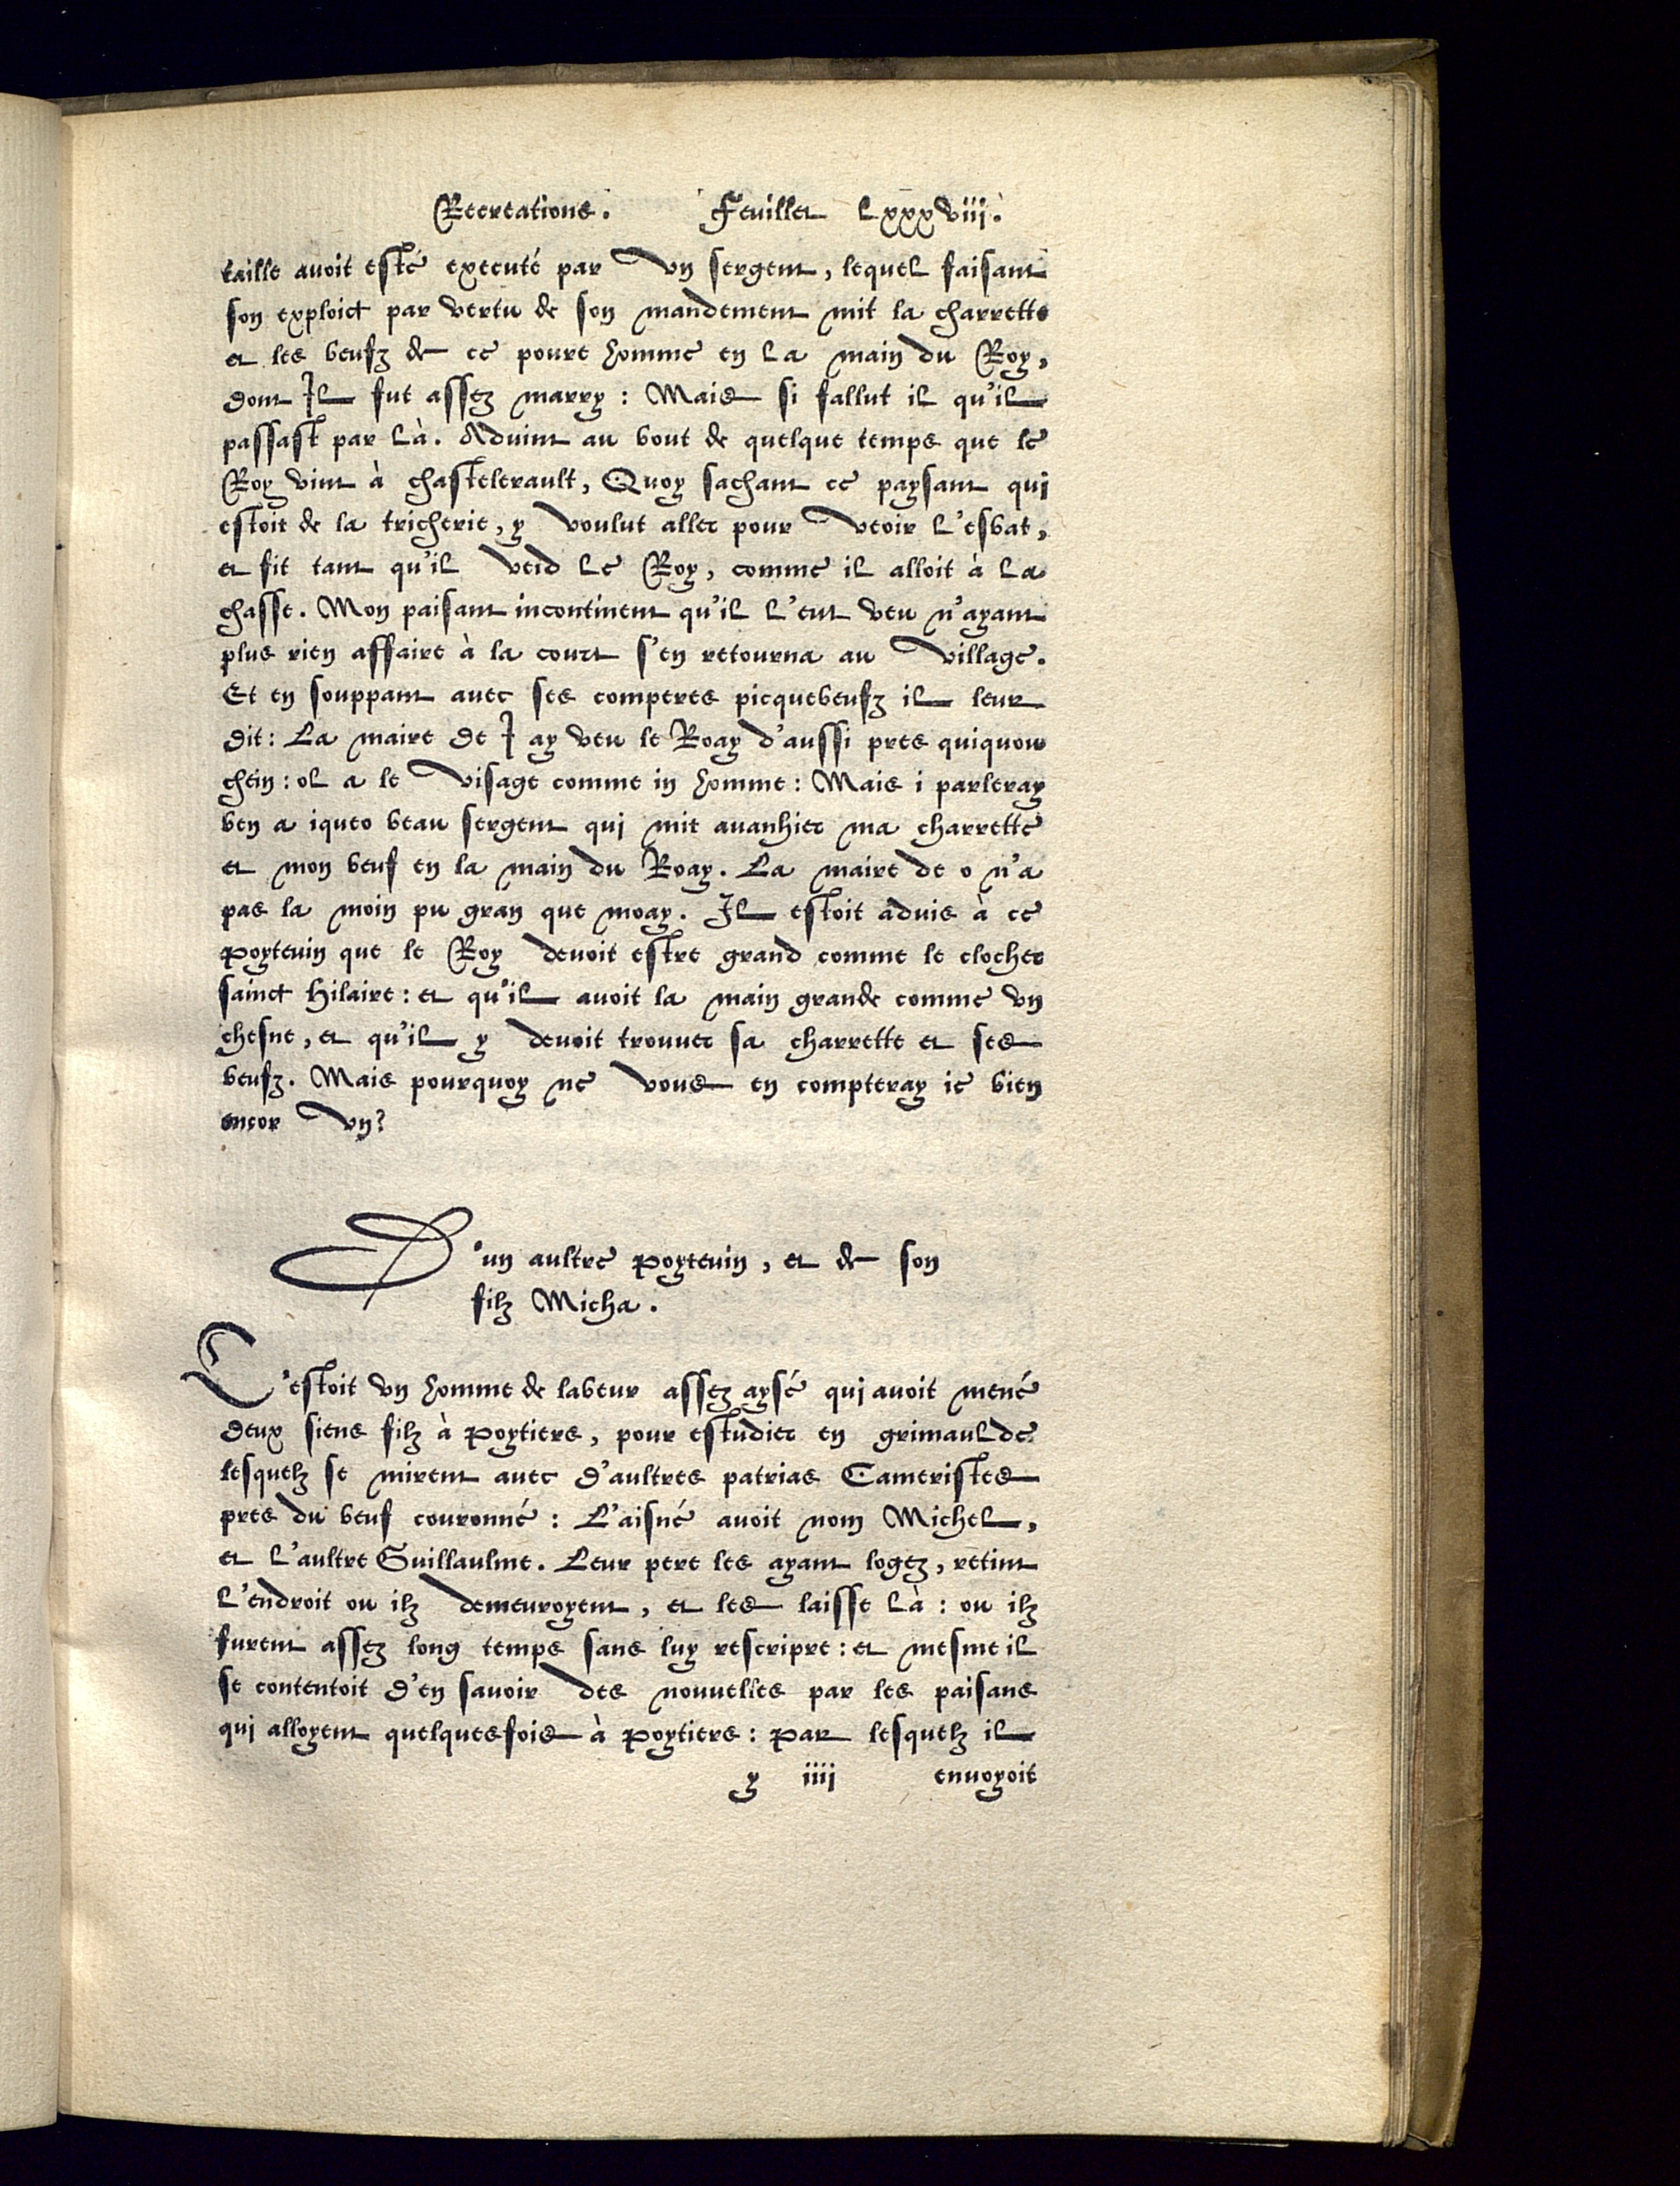 Recreations. Feuillet Lxxxviij.
taille auoit esté executé par vn sergent, lequel faisant
son exploict par vertu de son mandement mit la charrette
et les beufz de ce poure homme en la main du Roy,
dont Il fut assez marry : Mais si fallut il qu'il
passast par là. Aduint au bout de quelque temps que le
Roy vint à chastelerault, Quoy sachant ce paysant qui
estoit de la tricherie, y voulut aller pour veoir l'esbat,
et fit tant qu'il veid le Roy, comme il alloit à la
chasse. Mon paisant incontinent qu'il l'eut veu n'ayant
plus rien affaire à la court s'en retourna au village.
Et en souppant auec ses comperes picquebeufz il leur
dit : La maire de I ay veu le Roay d'aussi pres quiquou
chein : ol a le visage comme in homme : Mais i parleray
ben a iqueo beau sergent qui mit auanhier ma charrette
et mon beuf en la main du Roay. La maire de o n'a
pas la moin pu gran que moay. Il estoit aduis à ce
poyteuin que le Roy deuoit estre grand comme le clocher
sainct Hilaire : et qu'il auoit la main grande comme vn
chesne, et qu'il y deuoit trouuer sa charrette et ses
beufz. Mais pourquoy ne vous en compteray ie bien
encor vn?
D'un aultre poyteuin, et de son
filz Micha.
C'estoit vn homme de labeur assez aysé qui auoit mené
deux siens filz à poytiers, pour estudier en grimaulde
lesquelz se mirent auec d'aultres patrias Cameristes
pres du beuf couronné : L'aisné auoit nom Michel,
et l'aultre Guillaulme. Leur pere les ayant logez, retint
l'endroit ou ilz demeuroyent, et les laisse là : ou ilz
furent assez long temps sans luy rescripre : et mesme il
se contentoit d'en sauoir des nouuelles par les paisans
qui alloyent quelquesfois à poytiers : par lesquelz il
y iiij enuoyoit